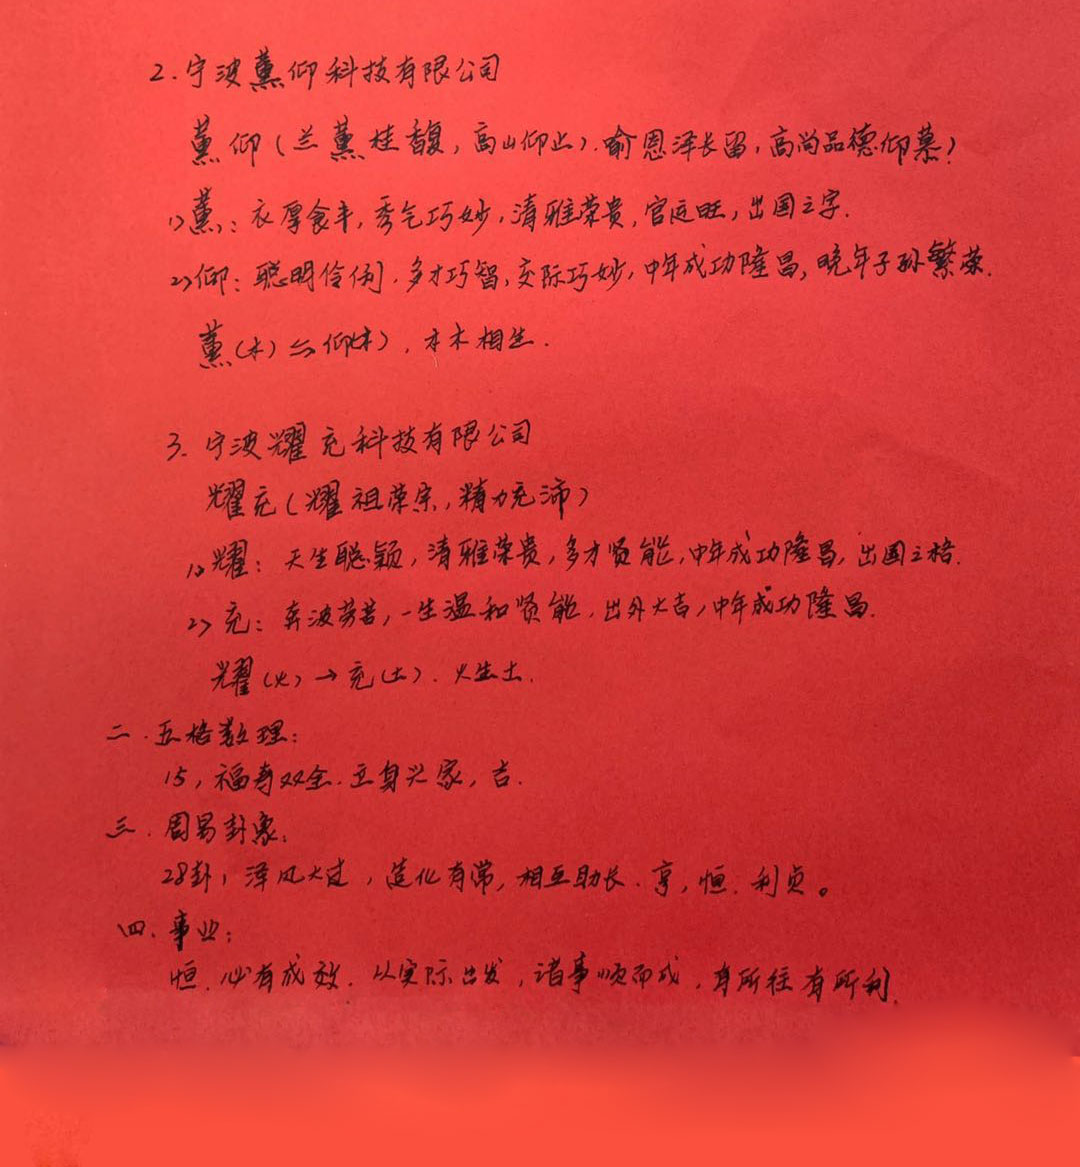 2.宁波薰仰科技有限公司
薰仰(兰薰桂馥,高山仰止).俞恩泽长留,高尚品德仰慕?
1>薰:衣厚食丰,秀气巧妙,清雅荣贵,官运旺,出国之字.
2>仰:聪明伶俐,多才巧智,交际巧妙,中年成功隆昌,晚年子孙繁荣.
薰(木)⇋仰(木),木木相生.
3.宁波耀充科技有限公司
耀充(耀祖荣宗,精力充沛)
1>耀:天生聪颖,清雅荣贵,多才贤能,中年成功隆昌,出国之格.
2>充:奔波劳苦,一生温和贤能,出外大吉,中年成功隆昌.
耀(火)→充(土).火生土.
二.五格数理:
15,福寿双全.立身兴家,吉.
三.周易卦象:
28卦,泽风大过,造化有常,相互助长.亨,恒.利贞。
四.事业:
恒.必有成效.从实际出发,诸事顺而成,有所往有所利.